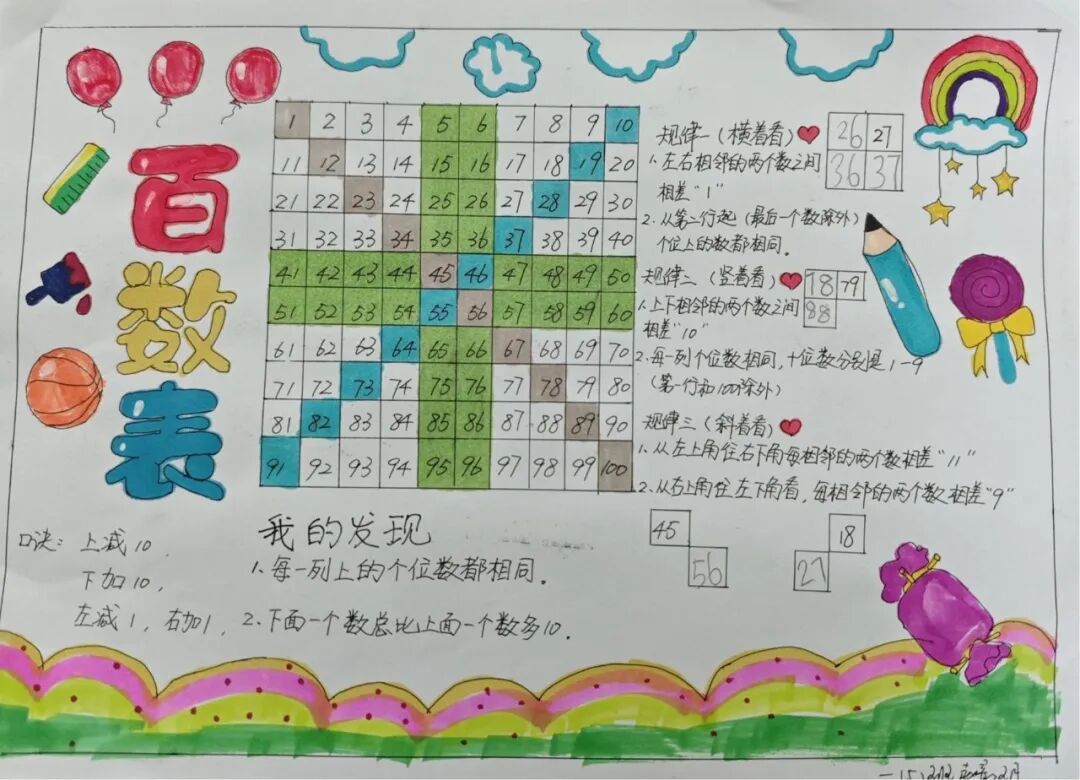 百
数
表
1 2 3 4 5 6 7 8 9 10
11 12 13 14 15 16 17 18 19 20
21 22 23 24 25 26 27 28 29 30
31 32 33 34 35 36 37 38 39 40
41 42 43 44 45 46 47 48 49 50
51 52 53 54 55 56 57 58 59 60
61 62 63 64 65 66 67 68 69 70
71 72 73 74 75 76 77 78 79 80
81 82 83 84 85 86 87 88 89 90
91 92 93 94 95 96 97 98 99 100
规律一(横着看)
26 27
36 37
1、左右相邻的两个数之间
相差"1"
2、从第二行起(最后一个数除外)
个位上的数都相同。
规律二(竖着看)
18 79
88
1、上下相邻的两个数之间
相差"10"
2、每一列个位数相同,十位数分别是1-9
(第一行和100除外)
规律三(斜着看)
1、从左上角往右下角每相邻的两个数相差"11"
2、从右上角往左下角看,每相邻的两个数相差"9"
45
56
18
27
口诀:上减10,
下加10,
左减1,右加1,
我的发现
1、每一列上的个位数都相同。
2、下面一个数总比上面一个数多10.